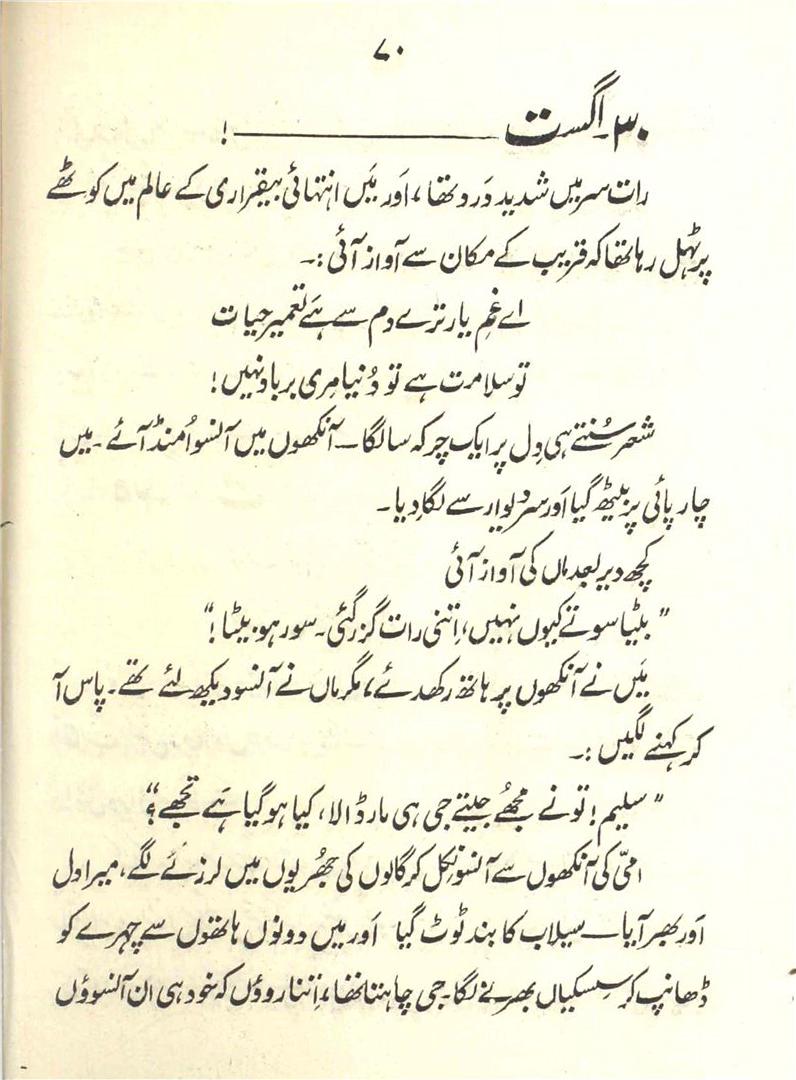 ۷۰
۳۰۔ اگست ــــــــــــــــــ !
رات سر میں شدید دَرد تھا، اَور مَیں انتہائی بیقراری کے عالم میں کوٹھے
پر ٹہل رہا تھا کہ قریب کے مکان سے آواز آئی :۔
اے غمِ یار ترے دم سے ہَے تعمیرِ حیات
تو سلامت ہے تو دُنیا مِری برباد نہیں!
شعر سُنتے ہی دِل پر ایک چرکہ سا لگا ــ آنکھوں میں آنسو اُمنڈ آئے ۔ میں
چار پائی پر بیٹھ گیا اَور سر دیوار سے لگا دیا ۔
کچھ دیر بعد ماں کی آواز آئی
" بیٹا سوتے کیوں نہیں، اِتنی رات گزر گئی ۔ سو رہو بیٹا! "
مَیں نے آنکھوں پر ہاتھ رکھدئے، مگر ماں نے آنسو دیکھ لئے تھے ۔ پاس آ
کر کہنے لگیں :۔
" سلیم! تو نے مجھے جیتے جی ہی مار ڈالا، کیا ہو گیا ہَے تجھے؟ "
امّی کی آنکھوں سے آنسو نکل کر گالوں کی جھُریوں میں لرزنے لگے، میرا دل
اَور بھر آیا ــ سیلاب کا بند ٹوٹ گیا اَور میں دونوں ہاتھوں سے چہرے کو
ڈھانپ کر سِسکیاں بھرنے لگا ۔ جی چاہتا تھا، اِتنا روؤں کہ خود ہی ان آنسوؤں